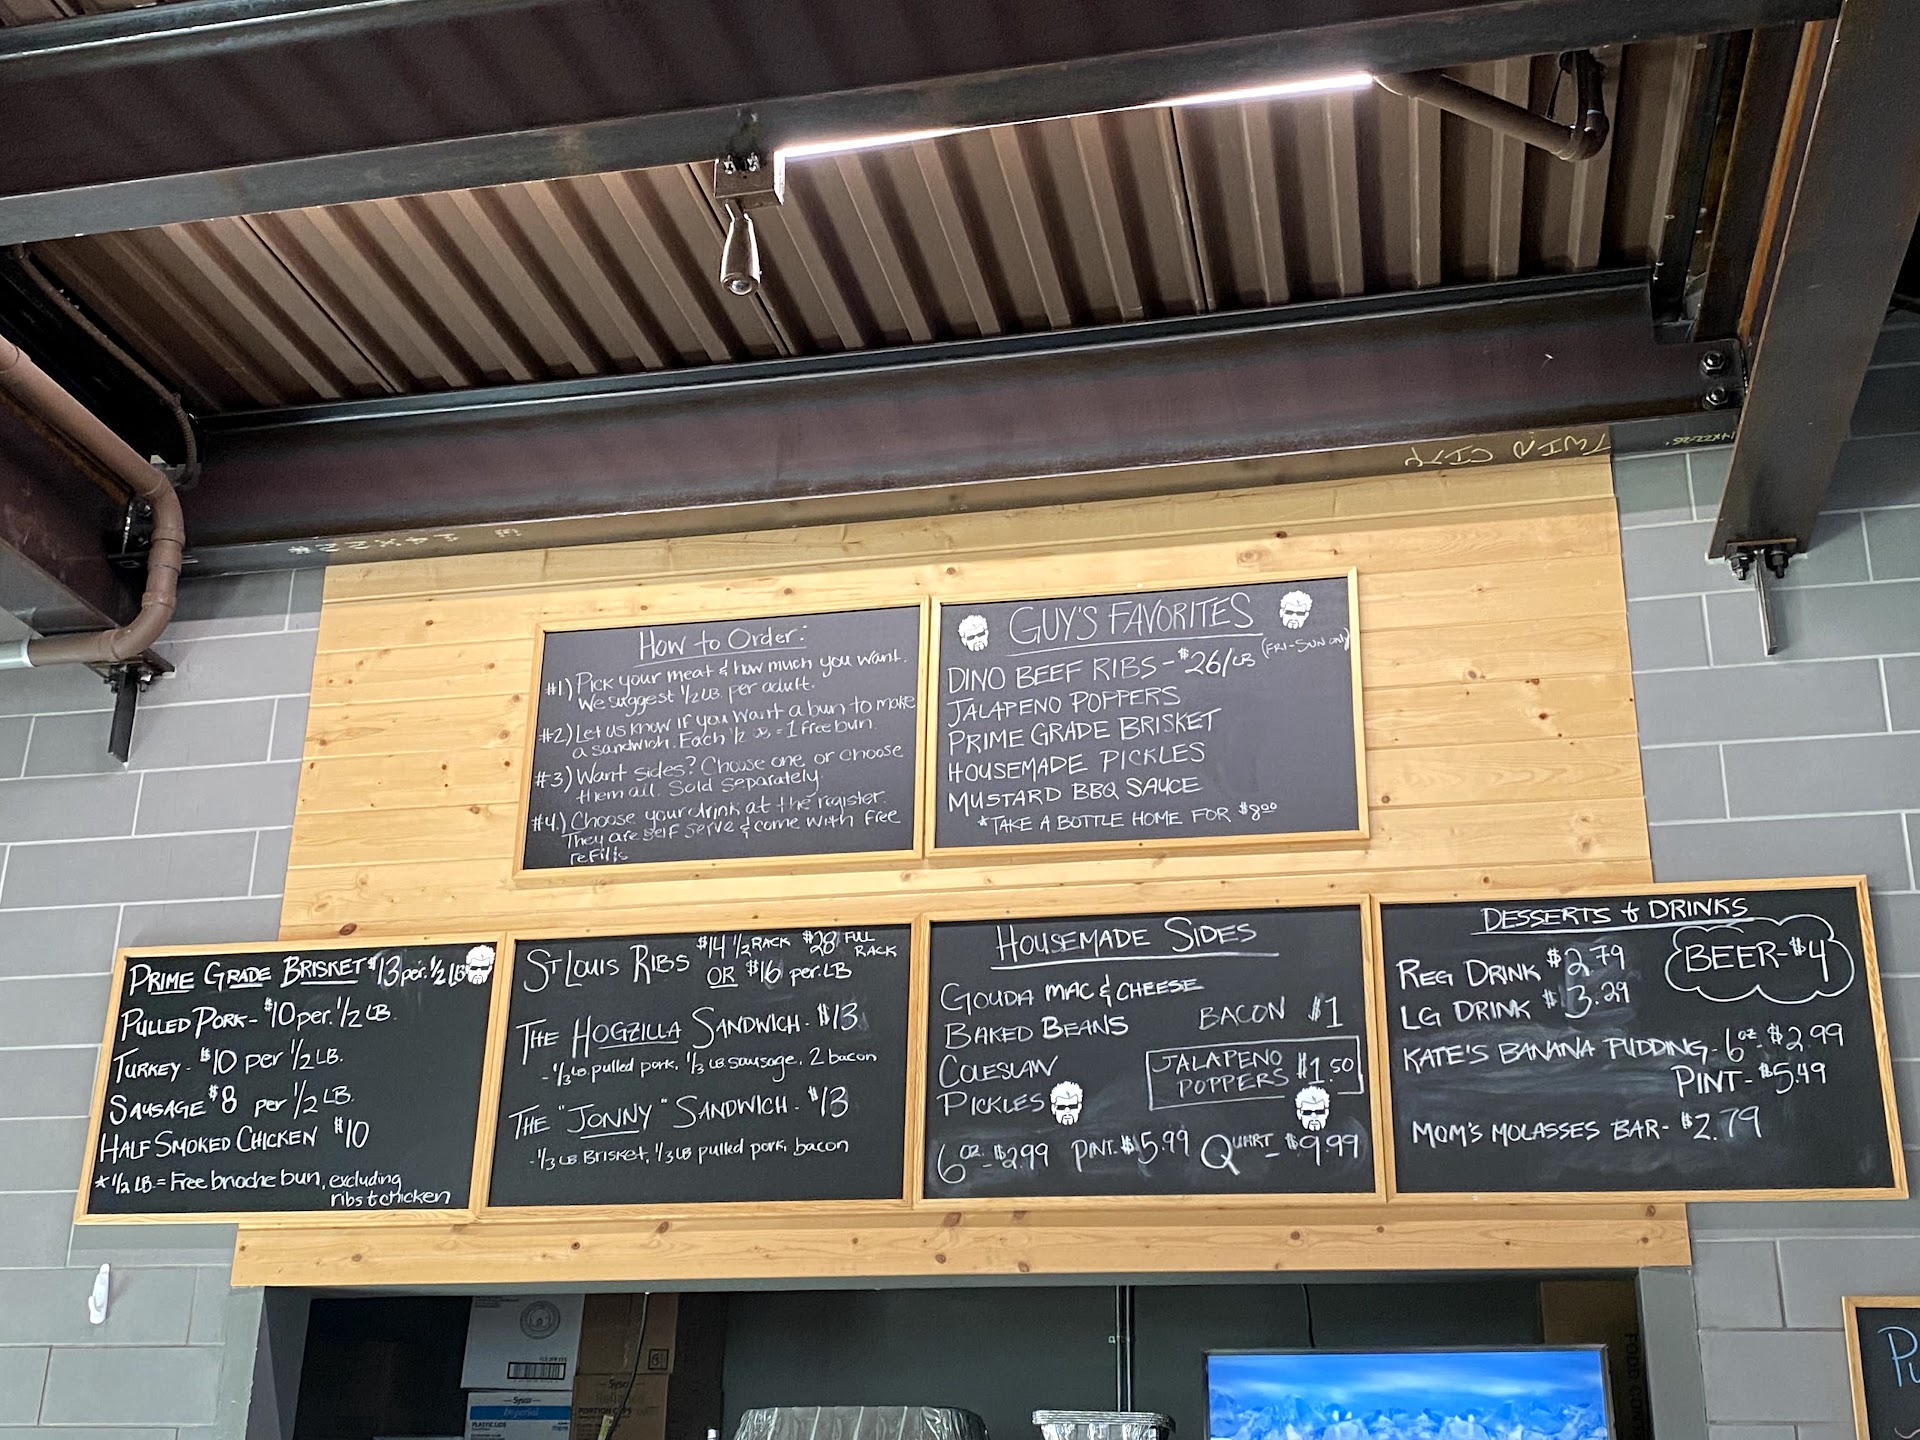 TWIN CITY
How to Order:
#1) Pick your meat & how much you want.
We suggest 1/2 LB. per adult.
#2) Let us know if you want a bun to make
a sandwich. Each 1/2 LB = 1 free bun.
#3) Want sides? Choose one or choose
them all. Sold separately
#4.) Choose your drink at the register.
They are self serve & come with free
refills
GUY'S FAVORITES
DINO BEEF RIBS - $26/LB (FRI-SUN only)
JALAPENO POPPERS
PRIME GRADE BRISKET
HOUSEMADE PICKLES
MUSTARD BBQ SAUCE
*TAKE A BOTTLE HOME FOR $8.00
PRIME GRADE BRISKET $13 per. 1/2 LB
PULLED PORK - $10 per. 1/2 LB.
TURKEY - $10 per 1/2 LB.
SAUSAGE $8 per 1/2 LB.
HALF SMOKED CHICKEN $10
*1/2 LB. = Free brioche bun, excluding
ribs & chicken
ST LOUIS RIBS $14 1/2 RACK $28 FULL RACK
OR $16 per. LB
THE HOGZILLA SANDWICH - $13
- 1/3 LB. pulled pork, 1/3 LB. sausage, 2 bacon
THE "JONNY" SANDWICH - $13
- 1/3 LB Brisket, 1/3 LB pulled pork, bacon
HOUSEMADE SIDES
GOUDA MAC & CHEESE
BAKED BEANS
COLESLAW
PICKLES
BACON $1
JALAPENO
POPPERS $1.50
6 OZ. - $2.99 PINT. $5.99 QUART - $9.99
DESSERTS & DRINKS
BEER - $4
REG DRINK $2.79
LG DRINK $3.29
KATE'S BANANA PUDDING - 6 oz - $2.99
PINT - $5.49
MOM'S MOLASSES BAR - $2.79
Sysco
Imperial
PLASTIC LIDS
Sysco
PORTION CUPS